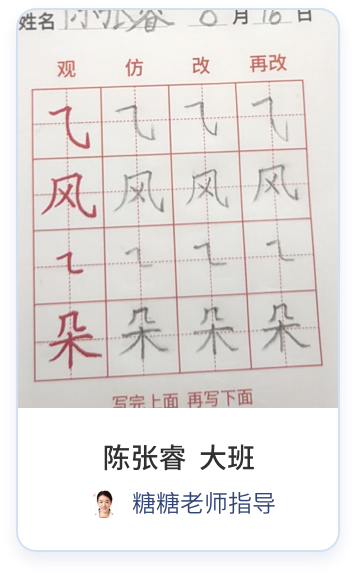 姓名 陈张睿 8 月 16 日
观 仿 改 再改
⺄ ⺄ ⺄ ⺄
风 风 风 风
㇍ ㇍ ㇍ ㇍
朵 朵 朵 朵
写完上面 再写下面
陈张睿 大班
糖糖老师指导